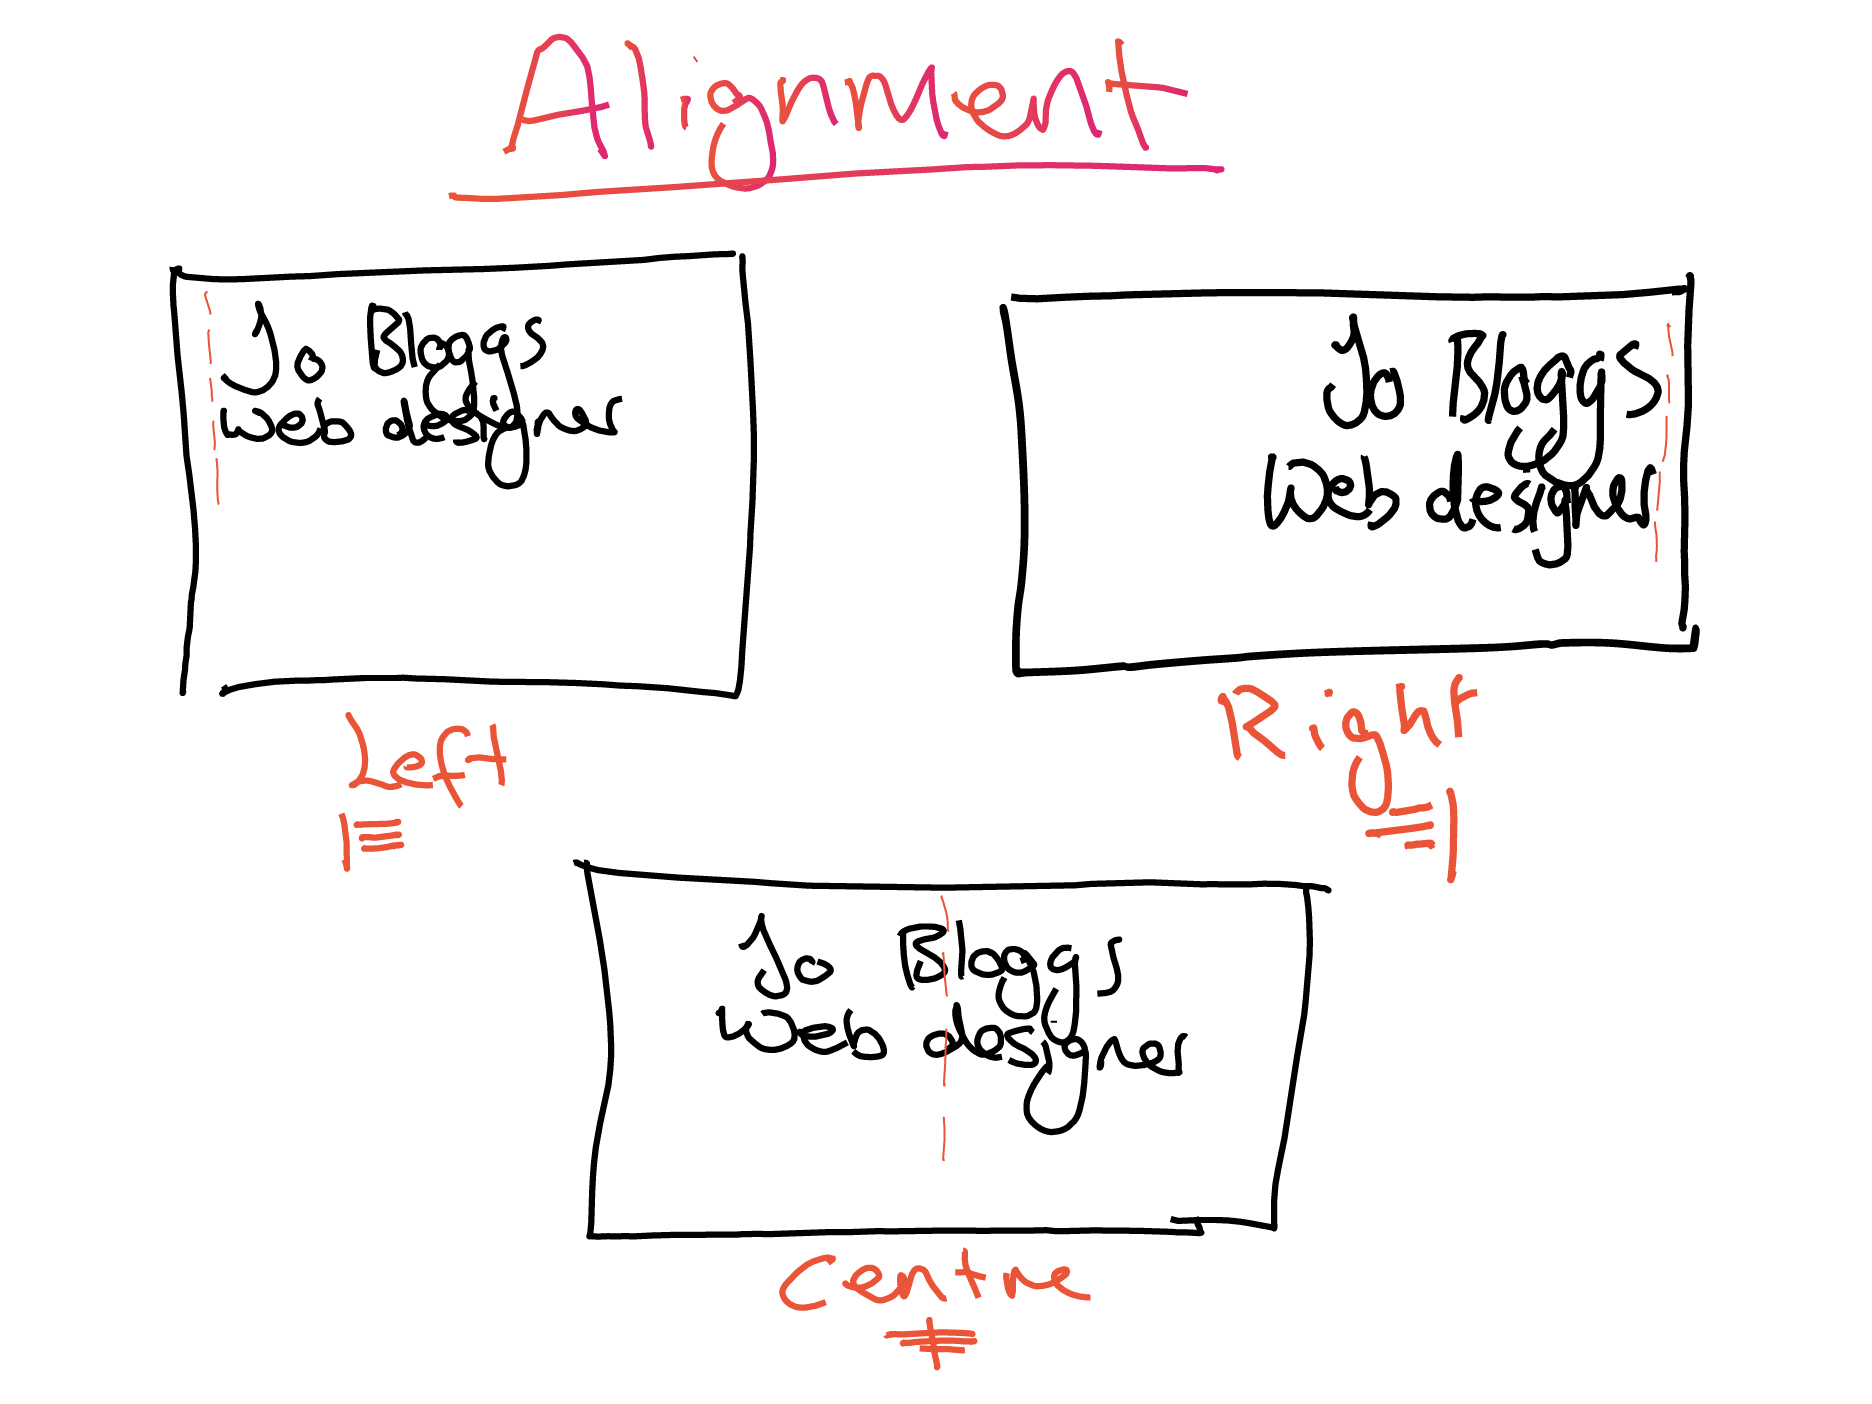 Alignment
Jo Bloggs
web designer
Left
Jo Bloggs
Web designer
Right
Jo Bloggs
Web designer
Centre